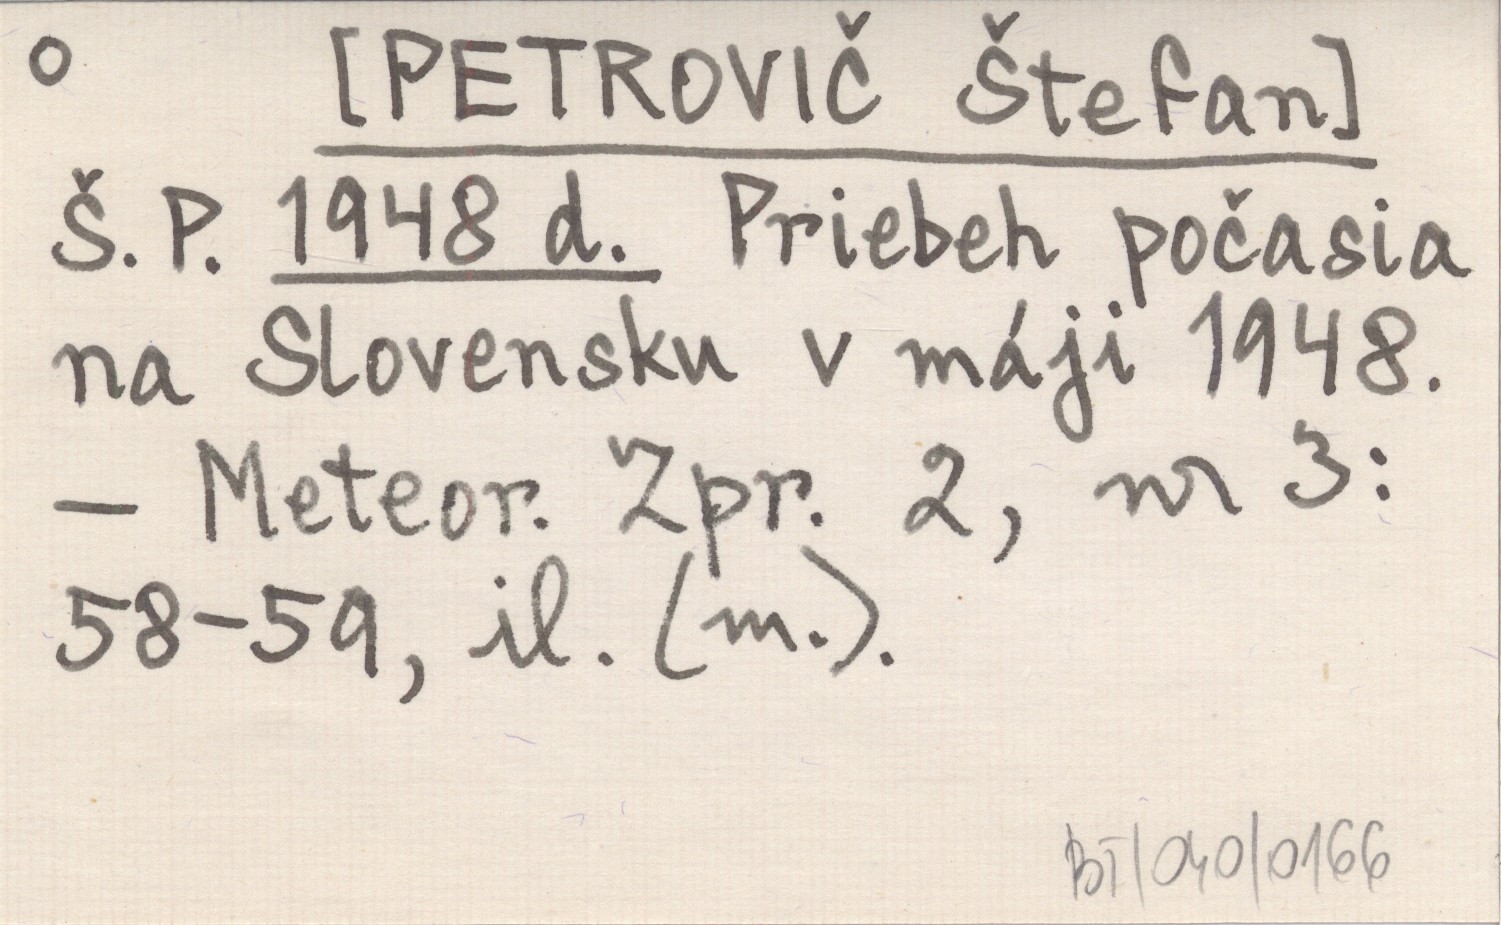 o [PETROVIČ Štefan]
Š.P. 1948 d. Priebeh počasia
na Slovensku v máji 1948.
— Meteor. Zpr. 2, nr 3:
58-59, il. (m.).
BT/040/0166